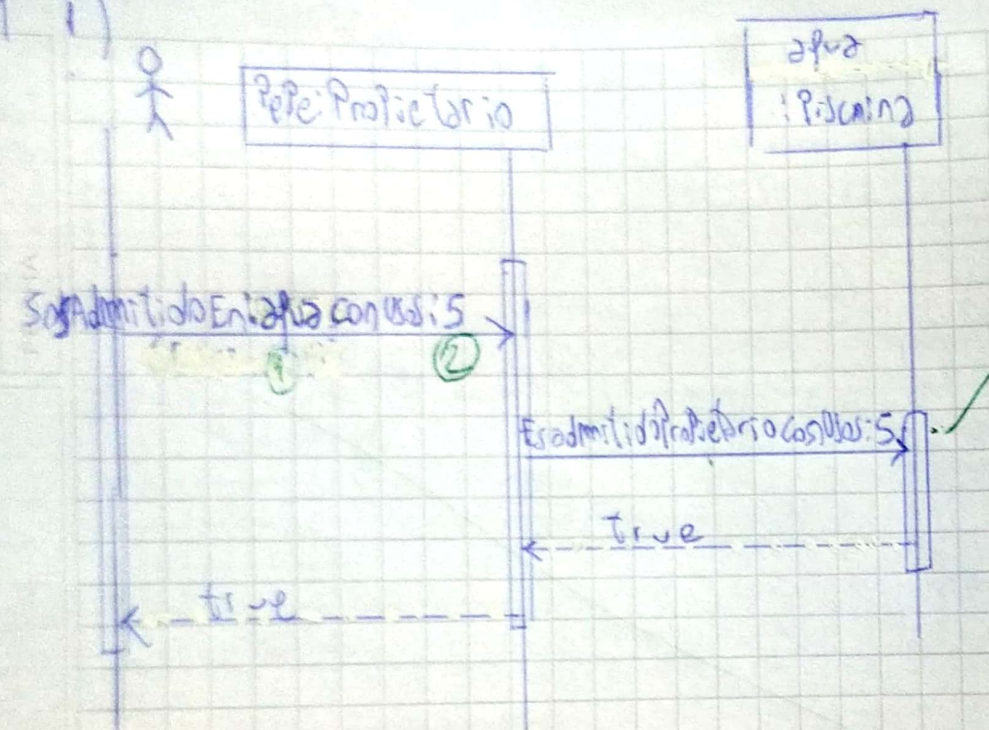 1)
Pepe:Propietario
agua
:Piscina
SosAdmitidoEn:agua conUsos:5
1
2
EsadmitidoPropietarioconUsos:5
true
true